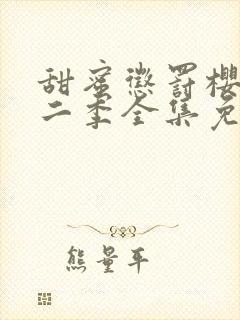 甜蜜惩罚樱
二季全集免
熊量平